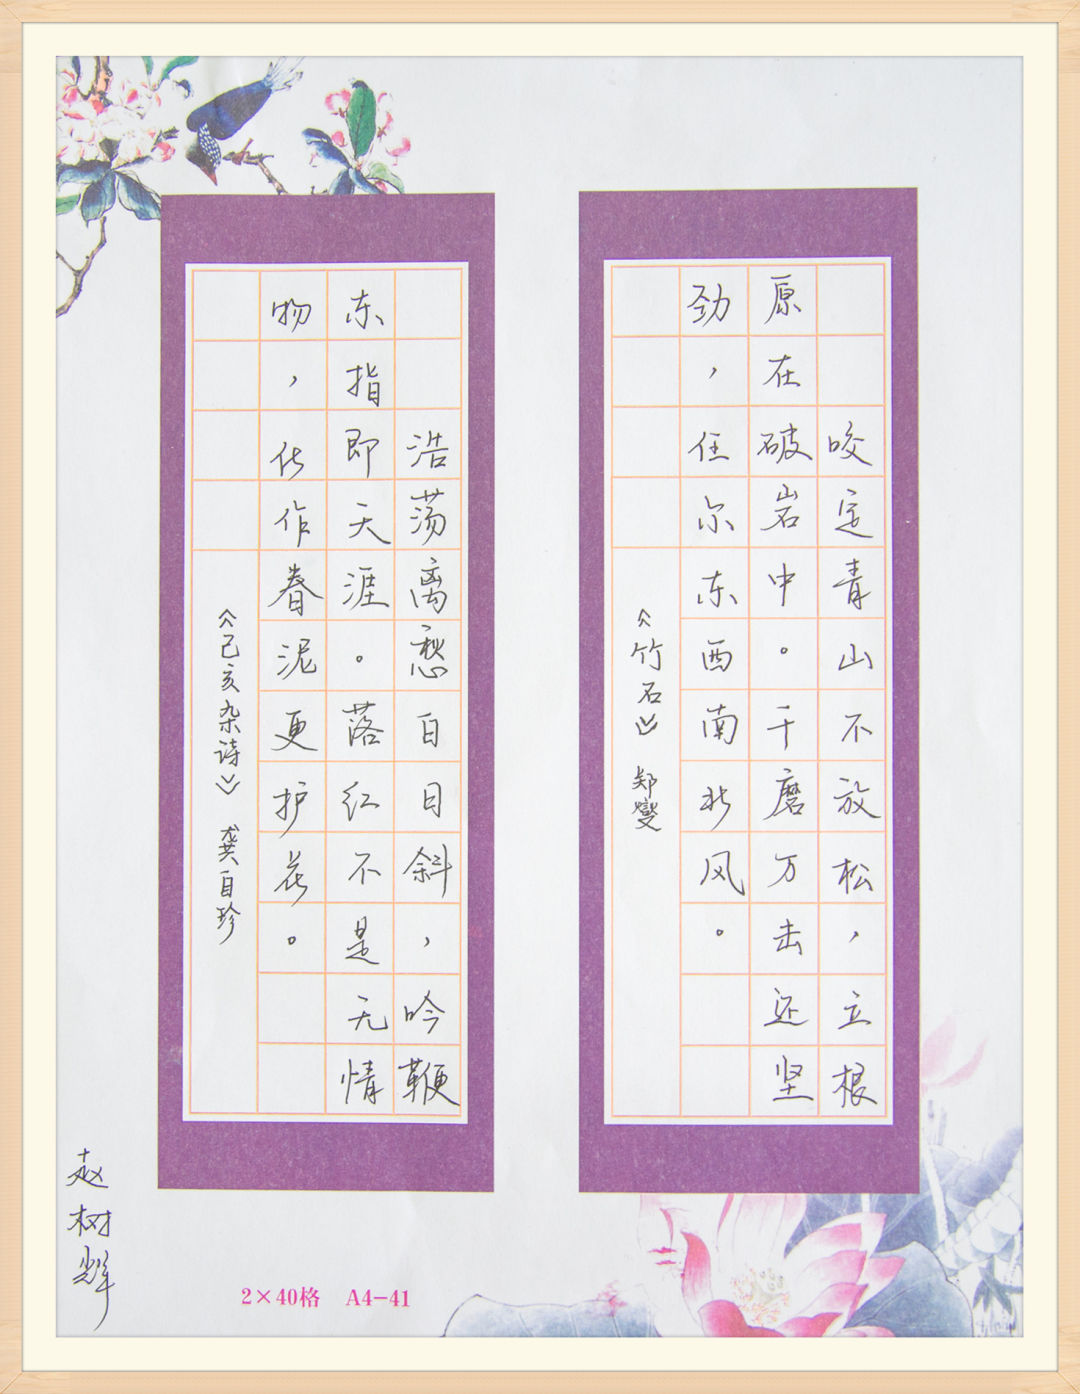 咬定青山不放松，立根
原在破岩中。千磨万击还坚
劲，任尔东西南北风。
《竹石》 郑燮
浩荡离愁白日斜，吟鞭
东指即天涯。落红不是无情
物，化作春泥更护花。
《己亥杂诗》 龚自珍
赵树辉
2×40格 A4-41